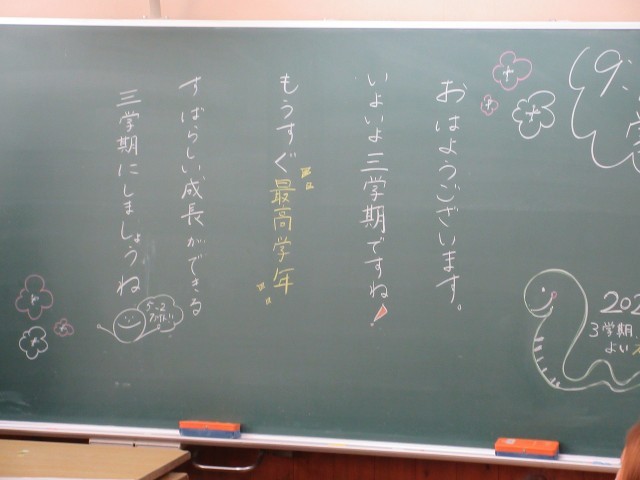 おはようございます。
いよいよ三学期ですね!
もうすぐ"最高学年"
すばらしい成長ができる
三学期にしましょうね
5-2
202
3学期
よい